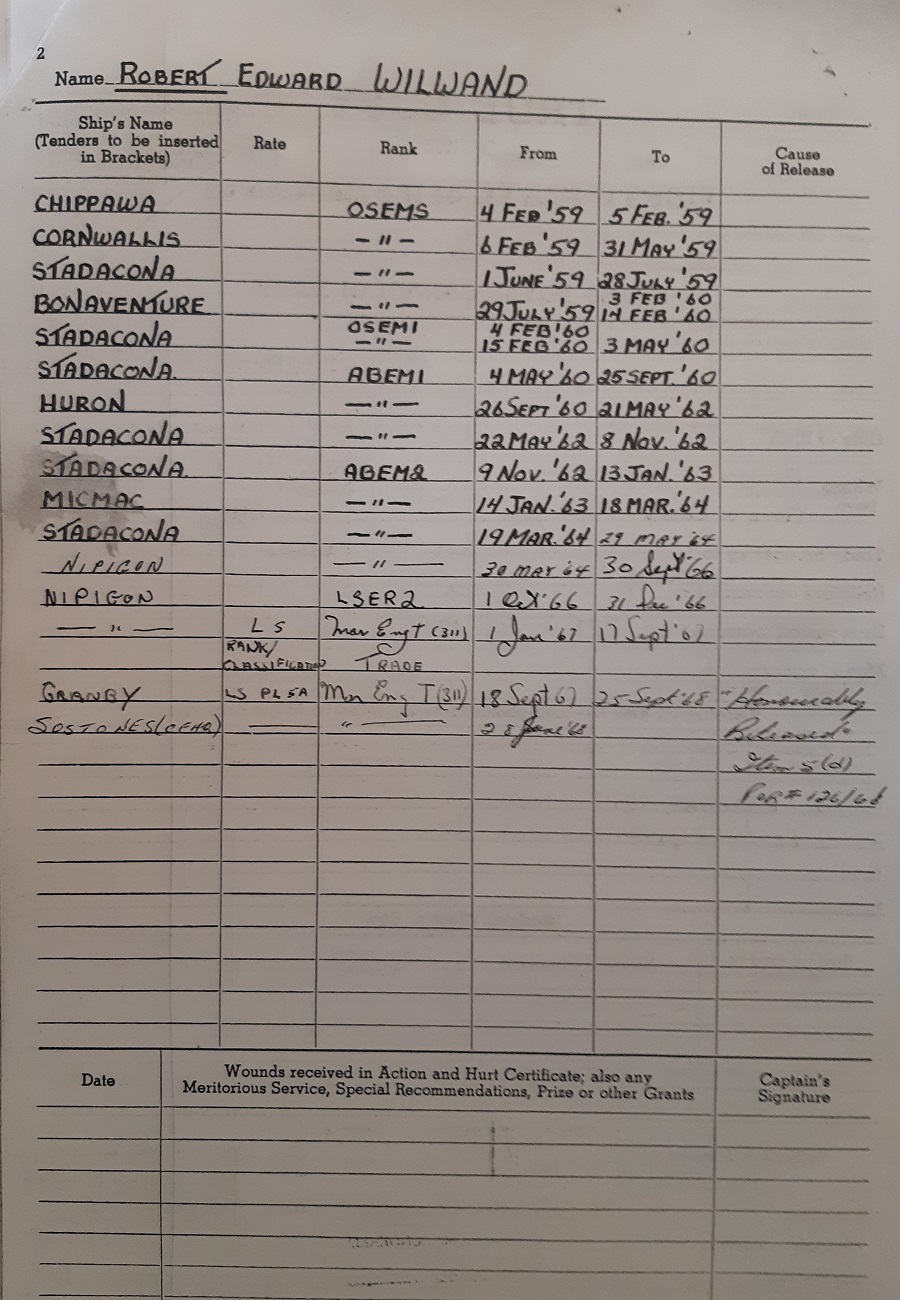 2
Name ROBERT EDWARD WILWAND
Ship's Name (Tenders to be inserted in Brackets) Rate Rank From To Cause of Release
CHIPPAWA OSEMS 4 FEB '59 5 FEB. '59
CORNWALLIS — " — 6 FEB '59 31 MAY '59
STADACONA — " — 1 JUNE '59 28 JULY '59
BONAVENTURE — " — 29 JULY '59 3 FEB '60
OSEM1 4 FEB '60 14 FEB '60
STADACONA — " — 15 FEB '60 3 MAY '60
STADACONA. ABEM1 4 MAY '60 25 SEPT. '60
HURON — " — 26 SEPT '60 21 MAY '62
STADACONA — " — 22 MAY '62 8 NOV. '62
STADACONA. ABEM2 9 NOV. '62 13 JAN. '63
MICMAC — " — 14 JAN. '63 18 MAR. '64
STADACONA — " — 19 MAR. '64 29 MAY 64
NIPIGON — " — 30 MAY 64 30 Sept '66
NIPIGON LSER2 1 Oct '66 31 Dec '66
— " — LS Mar Eng T (311) 1 Jan '67 17 Sept '67
RANK/ CLASSIFICATION TRADE
GRANBY LS PL 5A Mar Eng T (311) 18 Sept 67 25 Sept '68 "Honourably
SOSTONES (CFHQ) — " — 28 June '68 Released"
Item 5 (d)
POR # 126/68
Date Wounds received in Action and Hurt Certificate; also any Meritorious Service, Special Recommendations, Prize or other Grants Captain's Signature